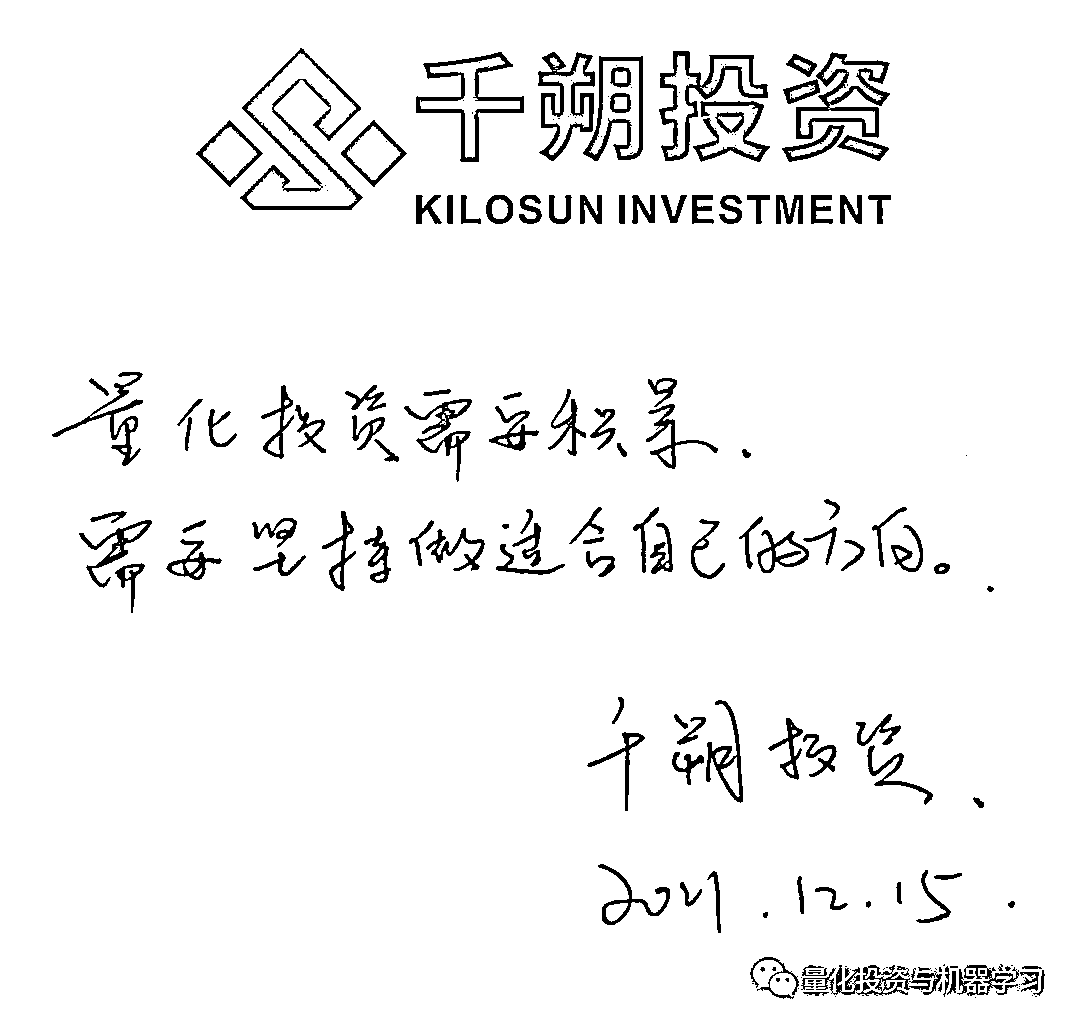 千朔投资
KILOSUN INVESTMENT
量化投资需要积累.
需要坚持做适合自己的方向。.
千朔投资、
2021.12.15.
量化投资与机器学习